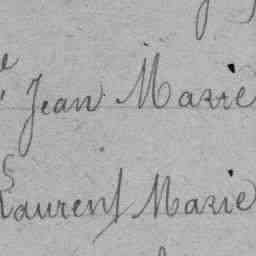 Jean Marie
Laurent Marie